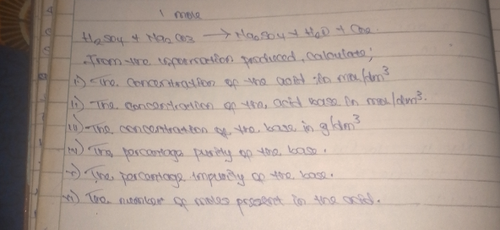 1 mole
H₂SO₄ + Na₂CO₃ → Na₂SO₄ + H₂O + CO₂
From the information produced, calculate;
i) The concentration of the acid in mol/dm³
ii) The concentration of the acid base in mol/dm³.
iii) The concentration of the base in g/dm³
iv) The percentage purity of the base.
v) The percentage impurity of the base.
vi) The number of moles present in the acid.